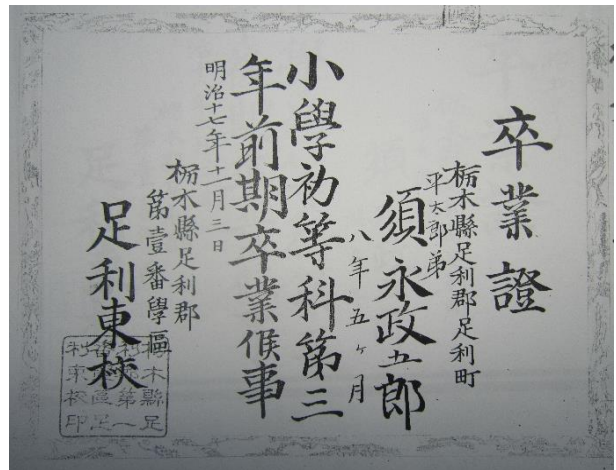 卒業證
栃木縣足利郡足利町
平太郎弟
須永政五郎
八年五ヶ月
小學初等科第三
年前期卒業候事
明治十七年十一月三日
栃木縣足利郡
第壹番學區
足利東校
栃木縣足
利郡第一
番學區足
利東校印